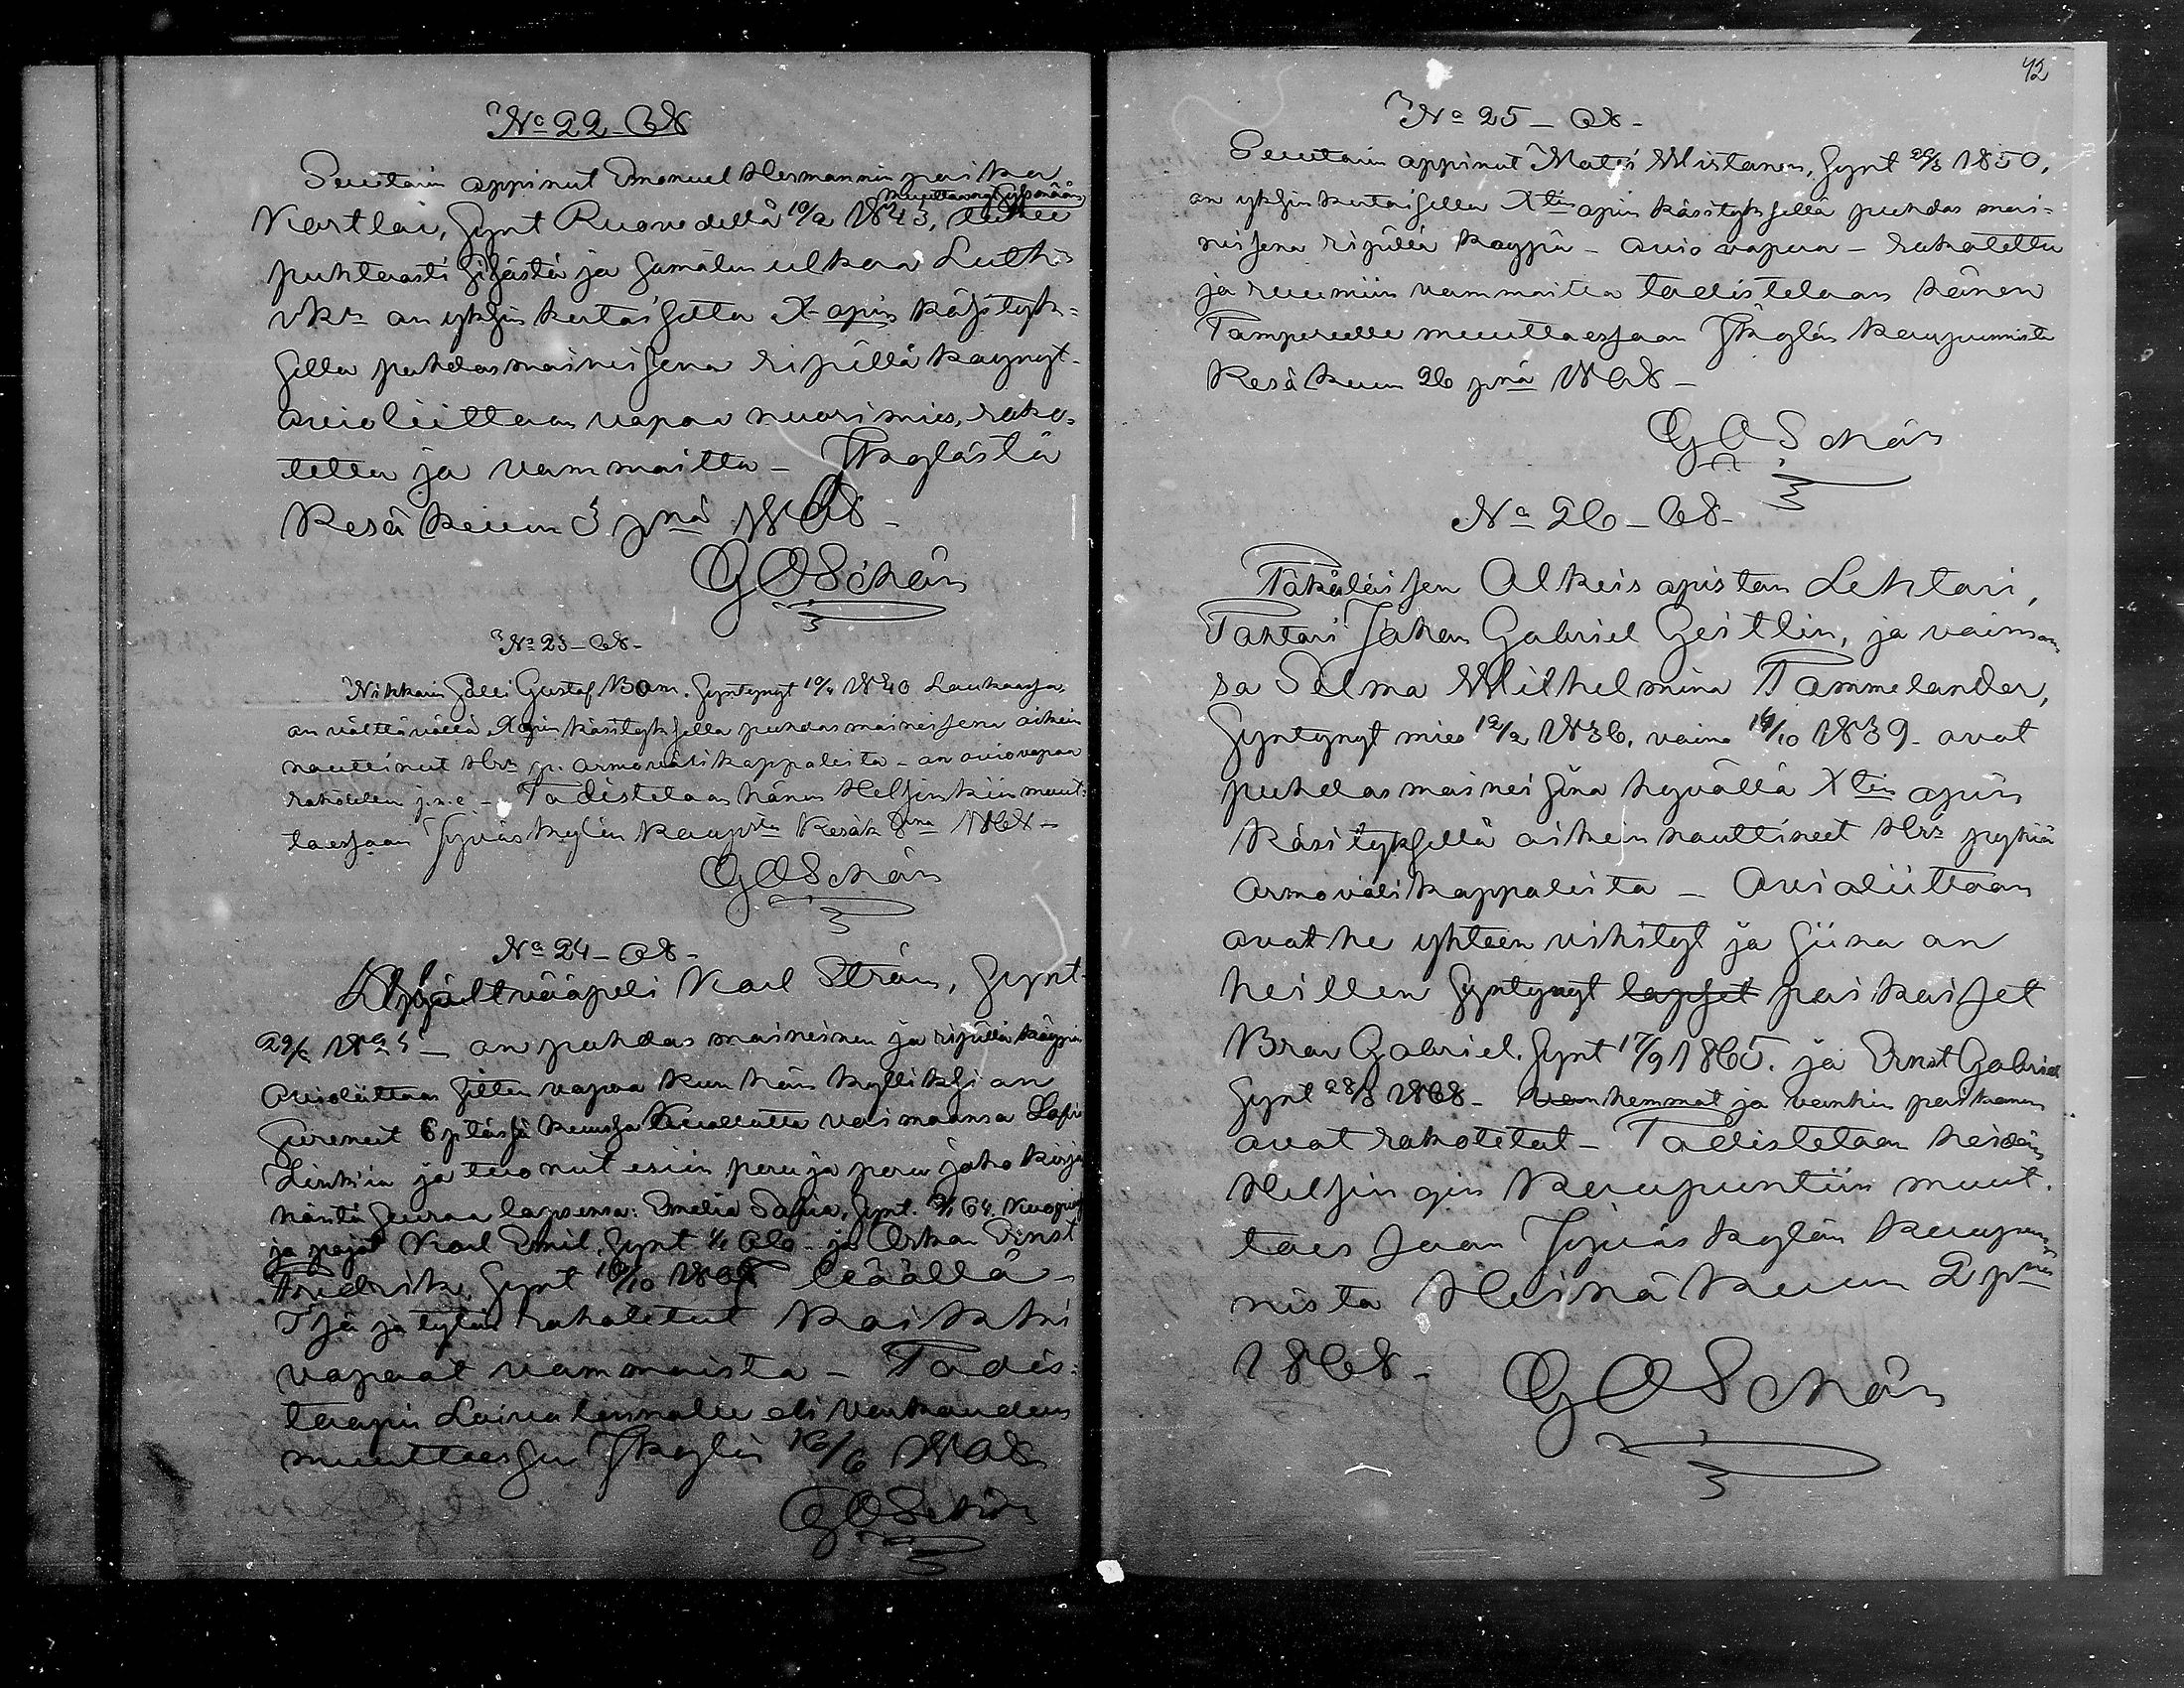 No 22 - 68
Suutarin appinut Emanuel Hermannin poika
Muuttanut
Kortlai, Synt Ruovedellä 10/2 1843, lukee
puhtaasti sisästä ja Jumalan ulkoa Luth:s
vk:n on yksinkertaisella X-opin käsityk=
sellä puhdasmainisena ripillä käynyt -
avioliittoon vapaa nuori mies, roko=
tettu ja vammoitta - JKylästä
Kesäkuun 3 pnä 1868 -
G O Schön
No 23 - 68 -
Nikkarin sälli Gustaf Bom. Syntynyt 10/4 1840 Laukaassa,
on välttävällä Xopin käsityksellä puhdasmaineisena oikein
nauttinut Hrn p. armovälikappaleita - on aviovapaa
rokotettu j.n.e - Todistetaan hänen Helsinkiin muut=
taessaan Jyväskylän Kaupsta Kesäk 8 pnä 1868 -
G O Schön
No 24 - 68 -
vääpeli Karl Ström, Synt
29/ 18 - on puhdasmaineinen ja ripillä käypä
Avioliittoon sitten vapaa kun hän kylliksi on
surenut 6 pitässä kuussa kuollutta vaimoansa
ja tuonut esiin peru ja peru jako kirja
häntä seuraa lapsensa: Emelia Sofia, Synt. 64. Kuopio
ja pojat Karl Emil, Synt 1/1 66 - ja Oskar Ernst
Fredrik, Synt /10 186 täällä -
Isä ja tytär rokotetut Kaikki
vapaat vammoista - Todis=
taapi Laivalinnalle eli Varkauden
muuttaessa JKylä 16/6 1868
G O Schön
42
No 25 - 68 -
Suutarin appinut Mats Wistanen, Synt 1850,
on yksinkertaisella Xtin opin käsityksellä puhdas mai=
neisena ripillä käypä - avio vapaa - rokotettu
ja ruumiin vammoitta todistetaan hänen
Tampereelle muuttaessaan JKylän Kaupunnista
Kesäkuun 26 pnä 1868 -
G O Schön
No 26 - 68 -
Täkäläisen Alkeis opiston Lehtori,
Tohtori Johan Gabriel Geitlin, ja vaimon
sa Selma Wilhelmina Tammelander,
Syntynyt mies 12/2 1836, vaimo 14/10 1839 - ovat
puhdasmaineisina hyvällä Xtin opin
käsityksellä oikein nauttineet Hrn pyhiä
armovälikappaleita - Avioliittoon
ovat he yhteen vihityt ja siina on
heillen syntynyt lapset poikaiset
Bror Gabriel, Synt 17/9 1865. ja Ernst Gabriel
Synt 28/3 1868 - Vanhemmat ja vanhin poikanen
ovat rokotetut - Todistetaan heidän
Helsingin Kaupuntiin muut=
taessaan Jyväskylän kaupun=
nista Heinäkuun 2 pnä
1868 -
G O Schön